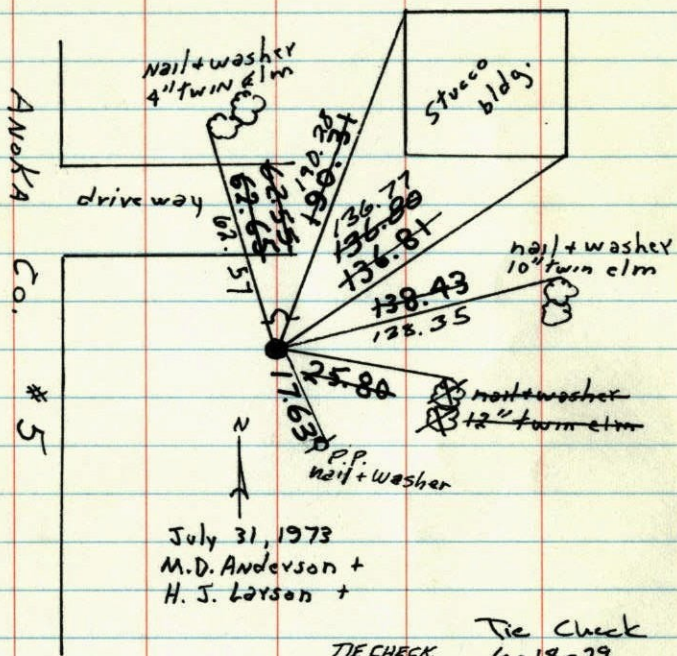 ANOKA CO. #5
Nail + washer
4" twin elm
Stucco
bldg.
drive way
62.55
62.65
62.57
190.28
190.31
136.77
136.80
136.81
nail + washer
10" twin elm
138.43
138.35
25.80
nail + washer
12" twin elm
17.63
P.P.
nail + washer
N
July 31, 1973
M.D. Anderson +
H. J. Larson +
Tie Check
TIE CHECK